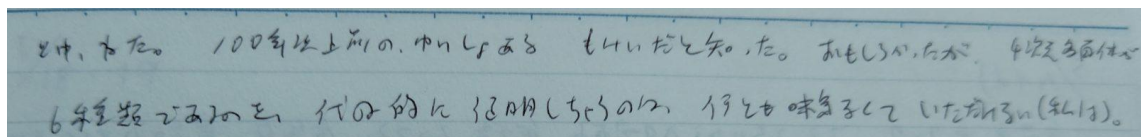 とけ、かた。 100年以上前の、ゆいしょある もけいだと知った。おもしろかったが、4次元多面体が
6種類であるのを、代数的に証明しちゃうのは、何とも味気なくて いただけない(私は)。